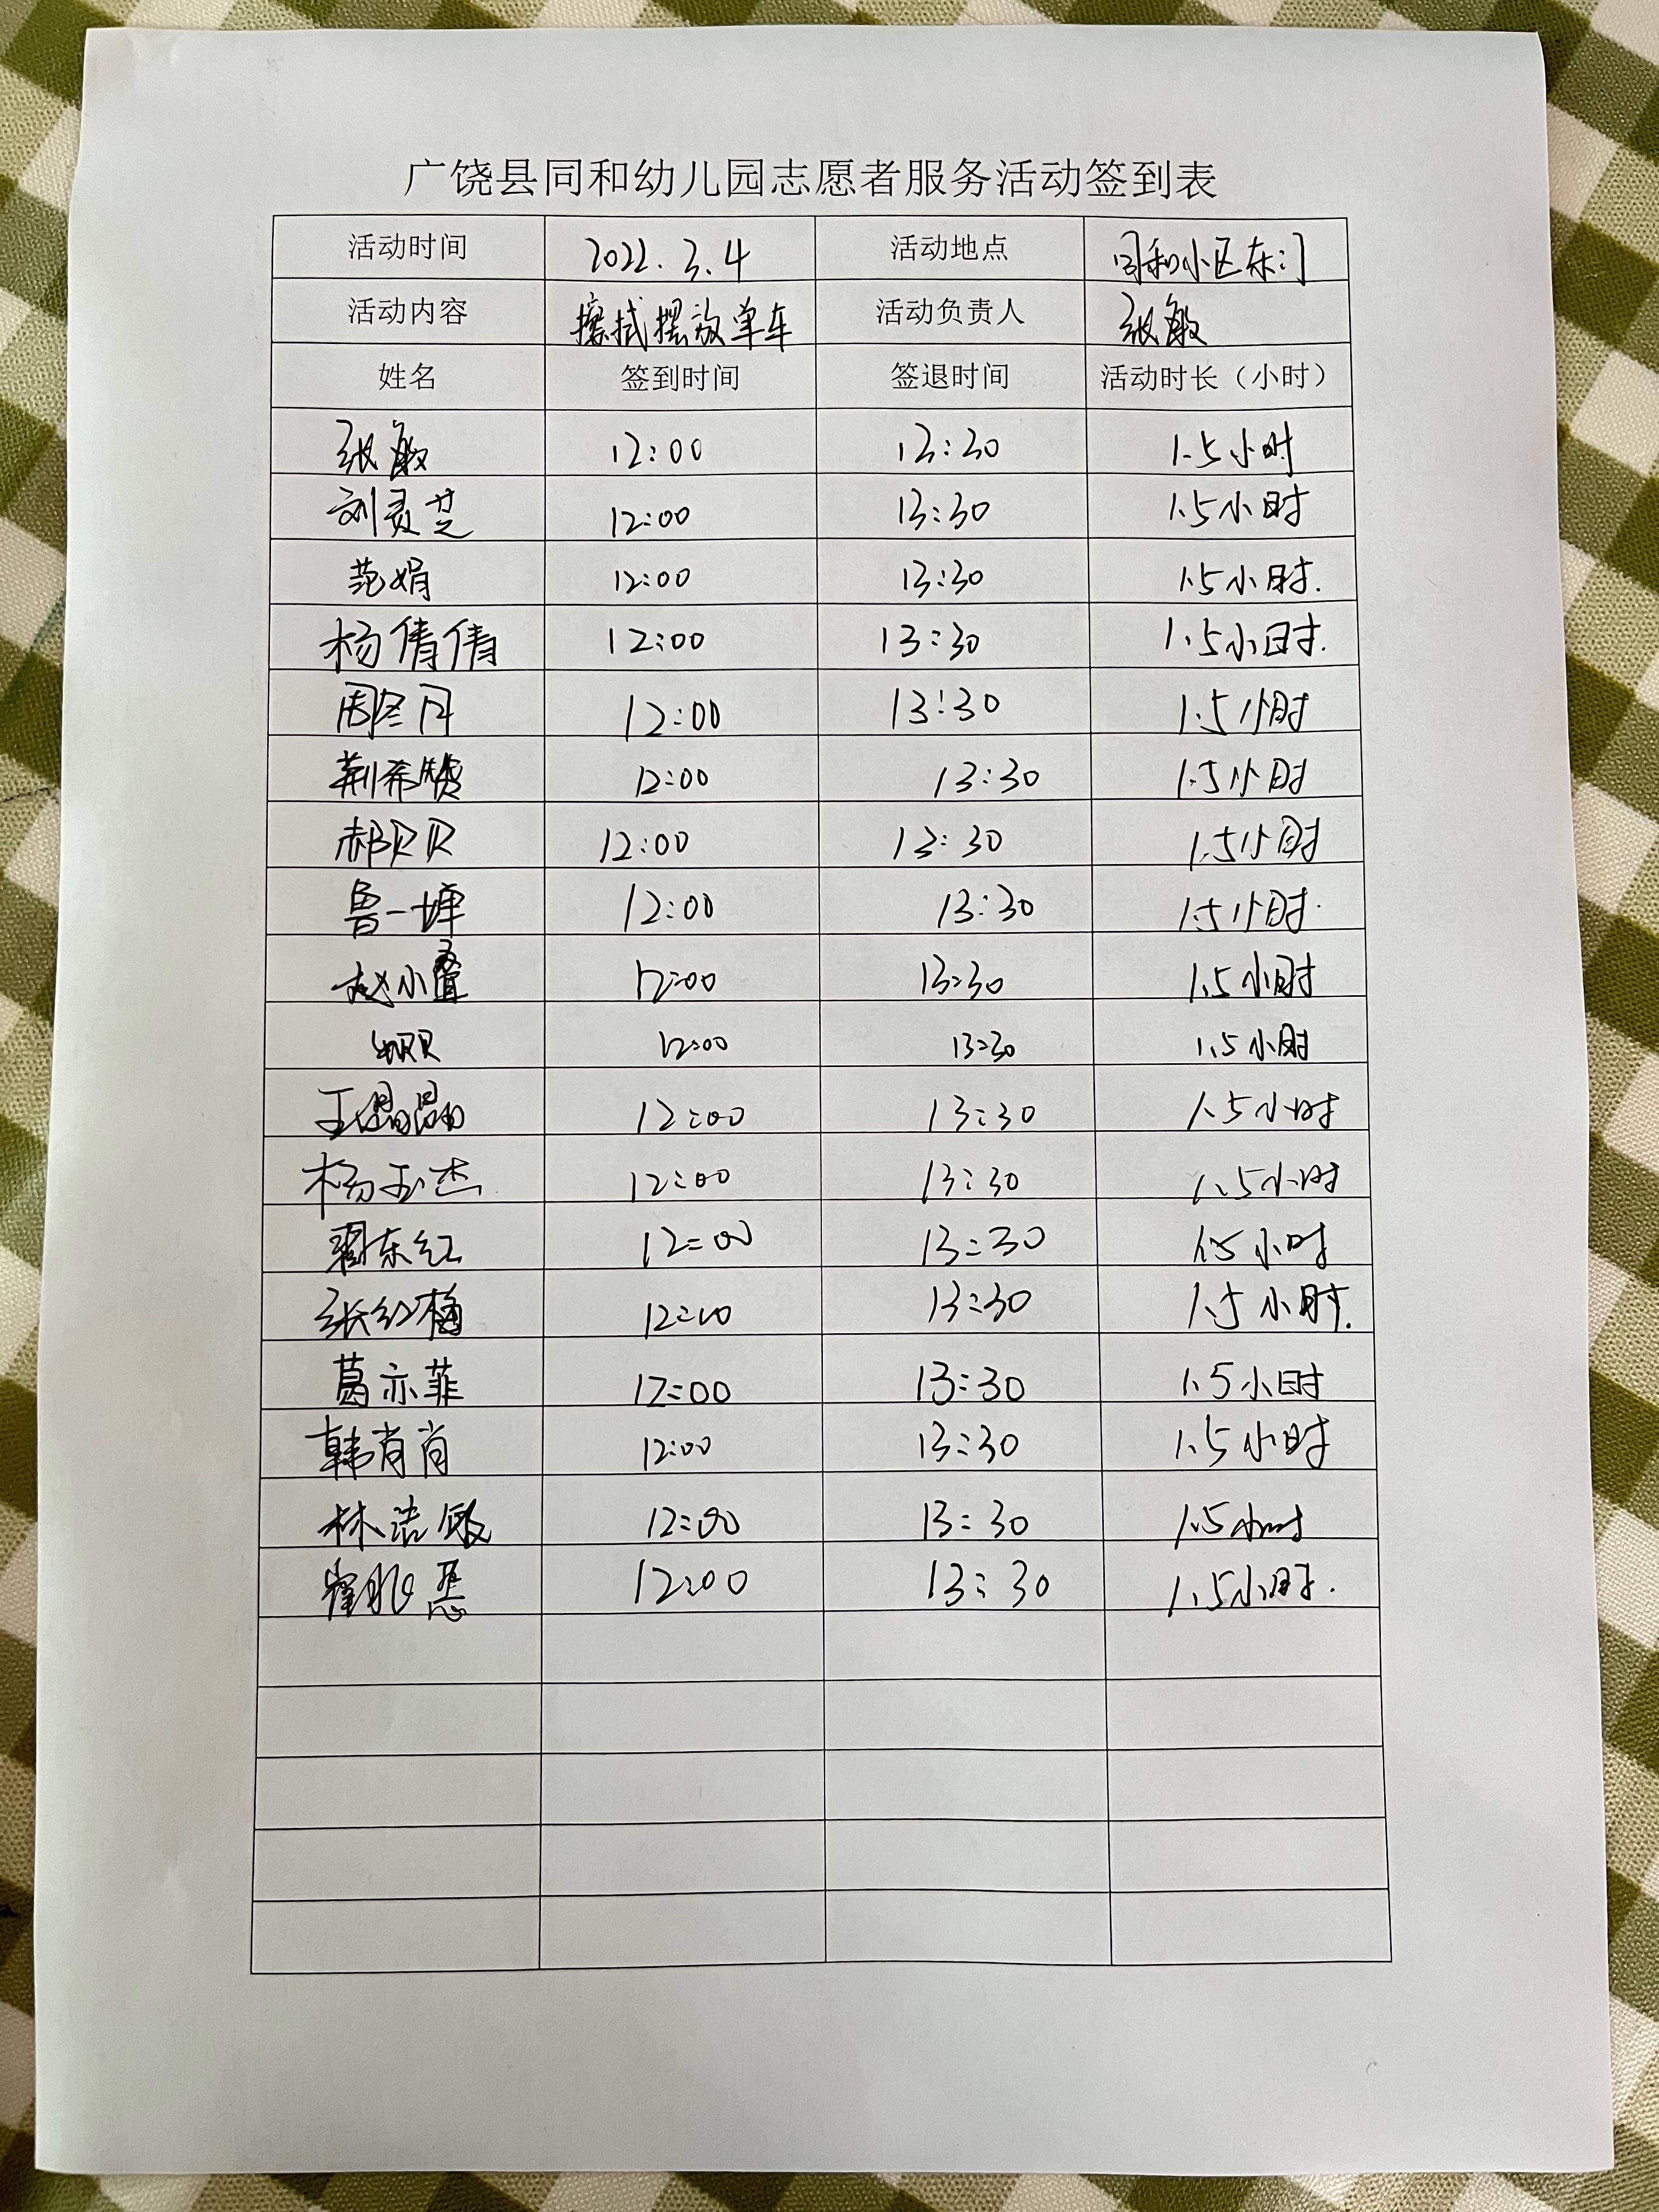 广饶县同和幼儿园志愿者服务活动签到表
活动时间 2022.3.4 活动地点 同和小区东门
活动内容 擦拭摆放单车 活动负责人 张敏
姓名 签到时间 签退时间 活动时长（小时）
张敏 12:00 13:30 1.5小时
刘灵芝 12:00 13:30 1.5小时
范娟 12:00 13:30 1.5小时.
杨倩倩 12:00 13:30 1.5小时.
周冬月 12:00 13:30 1.5小时
荆希赞 12:00 13:30 1.5小时
郝贝贝 12:00 13:30 1.5小时
鲁一埤 12:00 13:30 1.5小时.
赵小 12:00 13:30 1.5小时
12:00 13:30 1.5小时
王晶晶 12:00 13:30 1.5小时
杨玉杰 12:00 13:30 1.5小时
翟东红 12:00 13:30 1.5小时
张红梅 12:00 13:30 1.5小时.
葛亦菲 12:00 13:30 1.5小时
韩肖肖 12:00 13:30 1.5小时
林洁 12:00 13:30 1.5小时
崔 12:00 13:30 1.5小时.